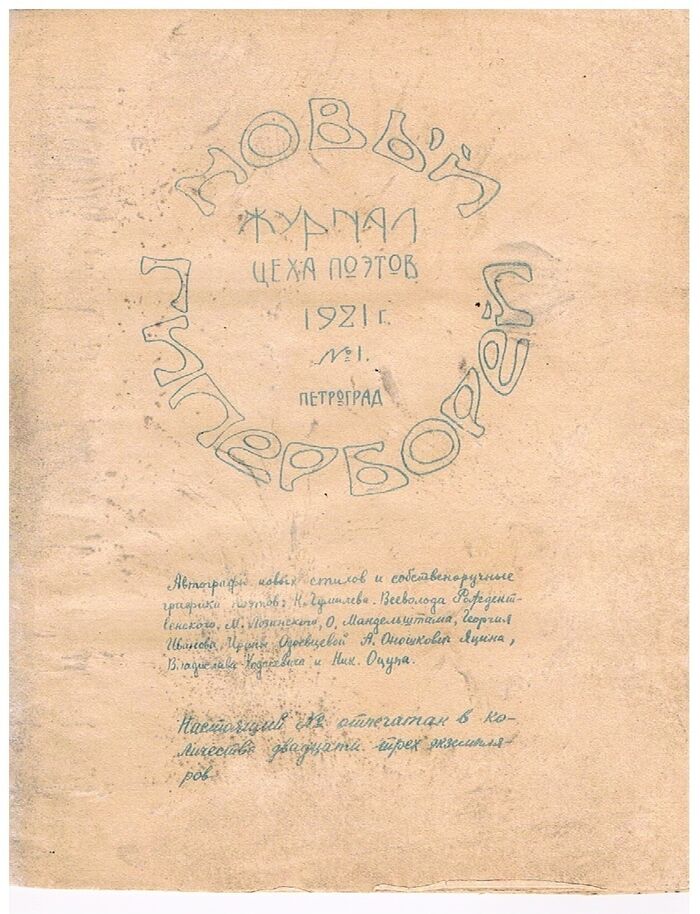 НОВЫЙ
ЖУРНАЛ
ЦЕХА ПОЭТОВ
1921 г.
№ 1.
ПЕТРОГРАД
ГИПЕРБОРЕЙ
Автографы новых стихов и собственоручные
графики поэтов: Н. Гумилева. Всеволода Рождест-
венского, М. Лозинского, О. Мандельштама, Георгия
Иванова, Ирины Одоевцевой А. Оношкович Яцина,
Владислава Ходасевича и Ник. Оцупа.
Настоящий № отпечатан в ко-
личестве двадцати трех экземпля-
ров.